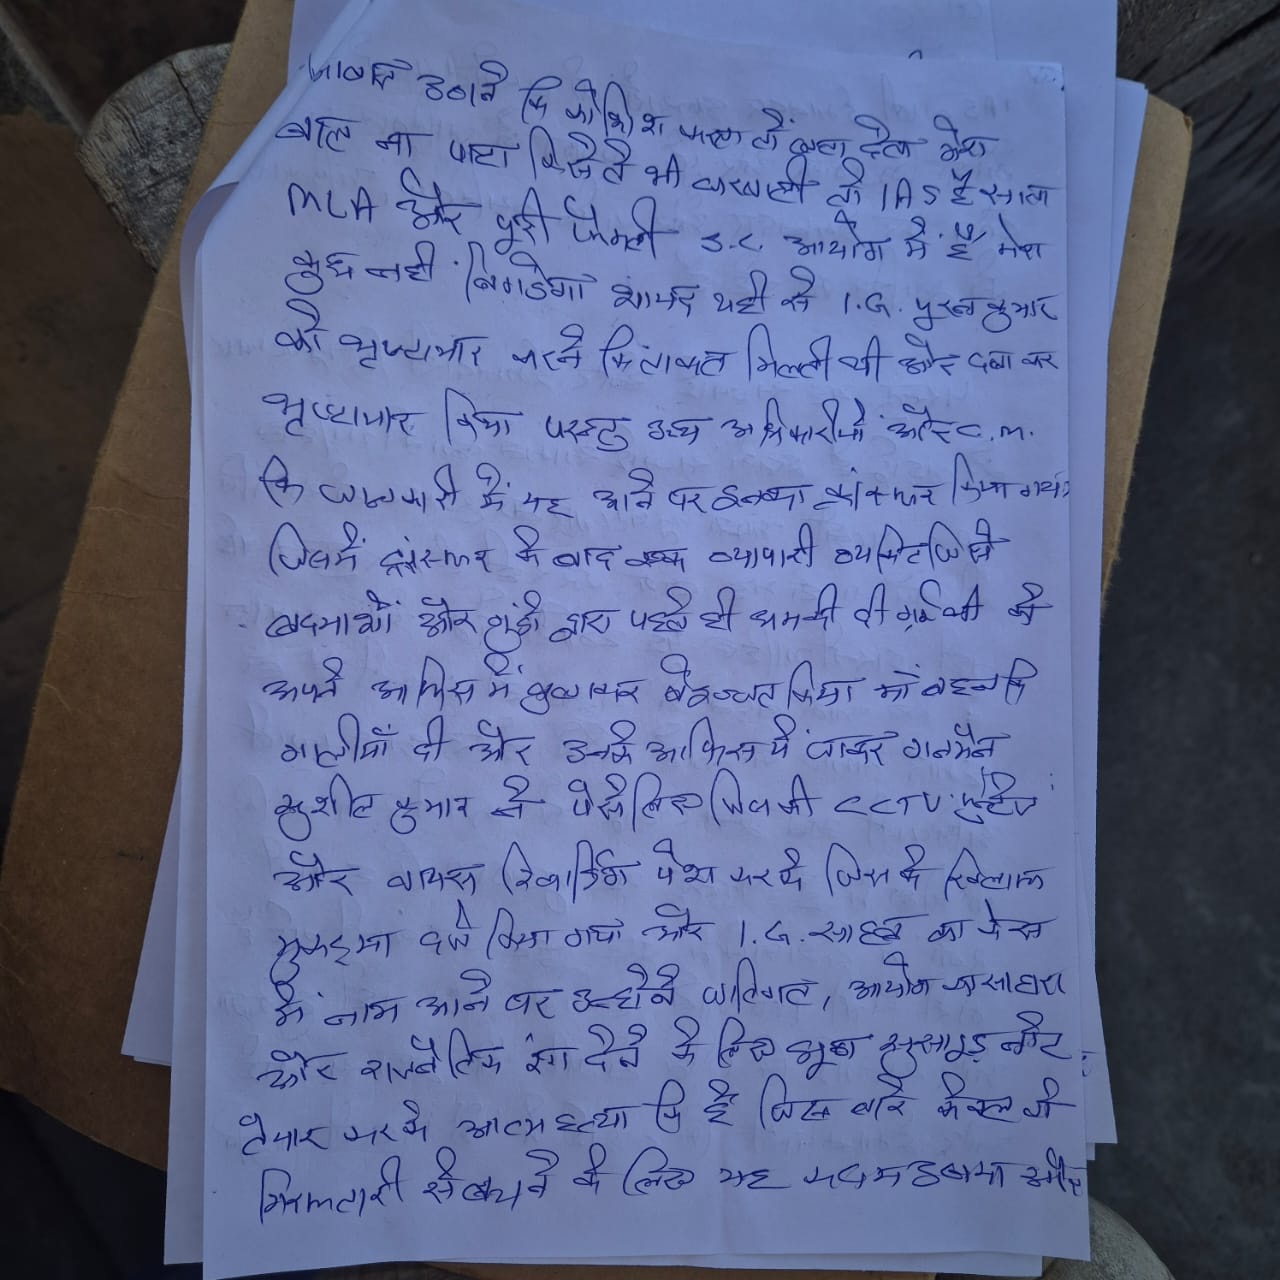 आवाज उठाने कि कोशिश करता तो दबा देता मेरा
बाल ना पाटा किसेते भी घरवाली तो IAS है साला
MLA और पूरी फैमली S.C. आयोग में है मेरा
कुछ नही बिगडेगा शायद यही से I.G. पुरन कुमार
को भृष्टाचार करने कि ताकत मिलती थी और दबा कर
भृष्टाचार किया परन्तु उच्च अधिकारीयों और C.M.
कि जानकारी में यह आने पर इनका ट्रांसफर किया गया
जिसमें ट्रांसफर के बाद एक व्यापारी व्यक्ति जिसे
बदमाशों और गुंडो द्वारा पहले ही धमकी दी गई थी को
अपने आफिस में बुलाकर बेइज्जत किया माँ बहन कि
गालीयाँ दी और उनके आफिस पे जाकर गनमैन
सुशील कुमार ने पैसे लिए जिसकी CCTV फुटेज
और वायस रिकार्डिंग पेश करके जिस के खिलाफ
मुकदमा दर्ज किया गया और I.G. साहब का केस
में नाम आने पर उन्होंने जातिगत, आयोग का सहारा
और राजनैतिक रंग देने के लिए झूठा सुसाइड नोट
तैयार करके आत्महत्या कि है जिस बारे केवल वो
गिरफ्तारी से बचने के लिए यह कदम उठाया और